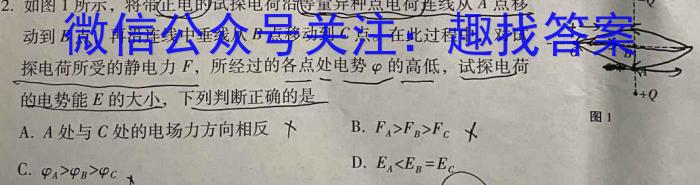 2. 如图1所示，将带正电的试探电荷沿等量异种点电荷连线从A点移
动到B 再沿连线中垂线从B点移动到C点。在此过程中，对试
微信公众号关注：趣找答案
探电荷所受的静电力F，所经过的各点处电势φ的高低，试探电荷
的电势能E的大小，下列判断正确的是
A. A处与C处的电场力方向相反
B. F_A>F_B>F_C
C. φ_A>φ_B>φ_C
D. E_A<E_B=E_C
-Q
B
A
+Q
图1